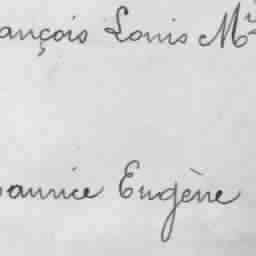 ançois Louis M
aurice Eugène